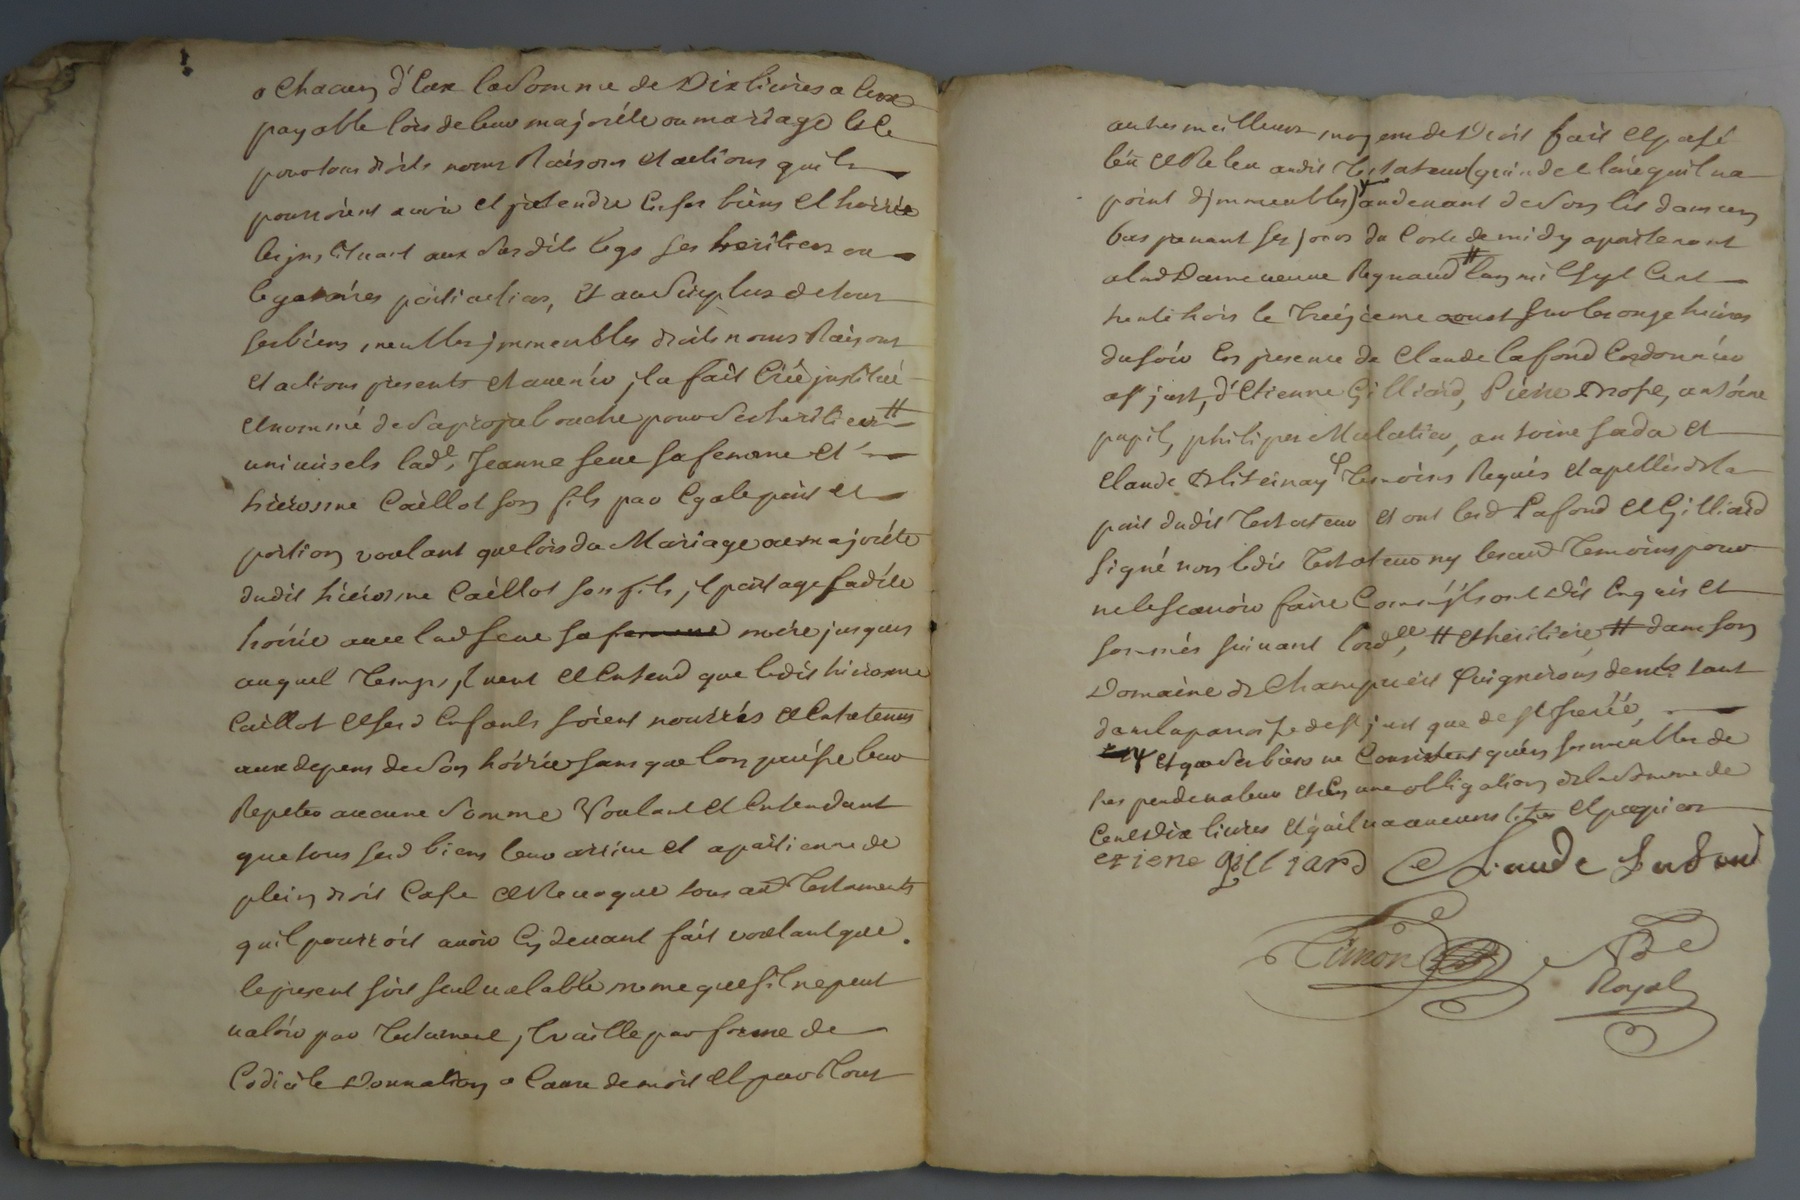 a Chacun d'Eux la Somme de Dix livres a Eux
payable lors de leur majorité ou mariage Et Ce
pour tous droits noms Raisons Et actions quils
pourroient avoir Et pretendre En ses biens Et hoirie
les instituant aux Susdits legs ses heritiers ou
legataires particuliers, Et au Surplus de tous
ses biens, meubles immeubles droits noms Raisons
Et actions presents Et avenir, il a fait Créé institué
Et nommé de Sa propre bouche pour Ses heritiers #
universels lad.e Jeanne Seve sa femme Et
hierosme Caillot son fils par Egale part Et
portion voulant que lors du Mariage ou majorité
dudit hierosme Caillot son fils, il partage sadite
hoirie avec lad Seve sa mere jusques
auquel Temps, il veut Et Entend que ledit hierosme
Caillot Et sesd Enfants soient nourris Et Entretenus
aux depens de Son hoirie sans que lon puisse leur
Repeter aucune Somme Voulant Et Entendant
que tous sesd biens leur arrive Et apartienne de
plein droit Casse Et Revoque tous aud Testaments
quil pourroit avoir Cy devant fait voulant que
le present soit seul valable meme que sil ne peut
valoir par Testament, il vaille par forme de
Codicile Donnation a Cause de mort Et par Tous
autres meilleurs moyens de Droit fait Et passé
leu Et Releu audit Testateur (qui a declaré quil na
point d'immeubles) au devant de Son lit dans un
bas prenant ses jours du Costé de midy apartenant
a lad Dame veuve Reynaud # lan mil Sept Cent
trente trois le Treizieme aoust Sur les onze heures
du soir En presence de Claude Lafond Cordonnier
a St just, d'Etienne Gilliard, Pierre Drose, antoine
pupil, philipes Mulatier, antoine sada Et
Claude Temoins Requis Et apellés de la
part dudit Testateur Et ont lesd Lafond Et Gilliard
signé non ledit Testateur ny les aud Temoins pour
ne le Scavoir faire Comm'ils ont Dit Enquis Et
sommés suivant lord.ce # Et heritiere # dans son
Domaine de Vignerons demt tant
dans la paroisse de St just que de St Irenée,
Et que Ses biens ne Consistent quen ses meubles de
tres peu de valeur Et En une obligation de la Somme de
Cent Dix livres Et quil na aucuns titres Et papiers
etiene gilliard Claude Lafond
Simon Nre
Royal